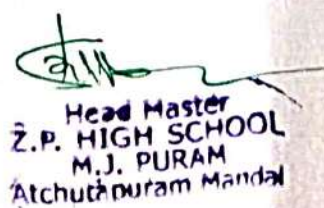 Head Master
Z.P. HIGH SCHOOL
M.J. PURAM
Atchuthpuram Mandal